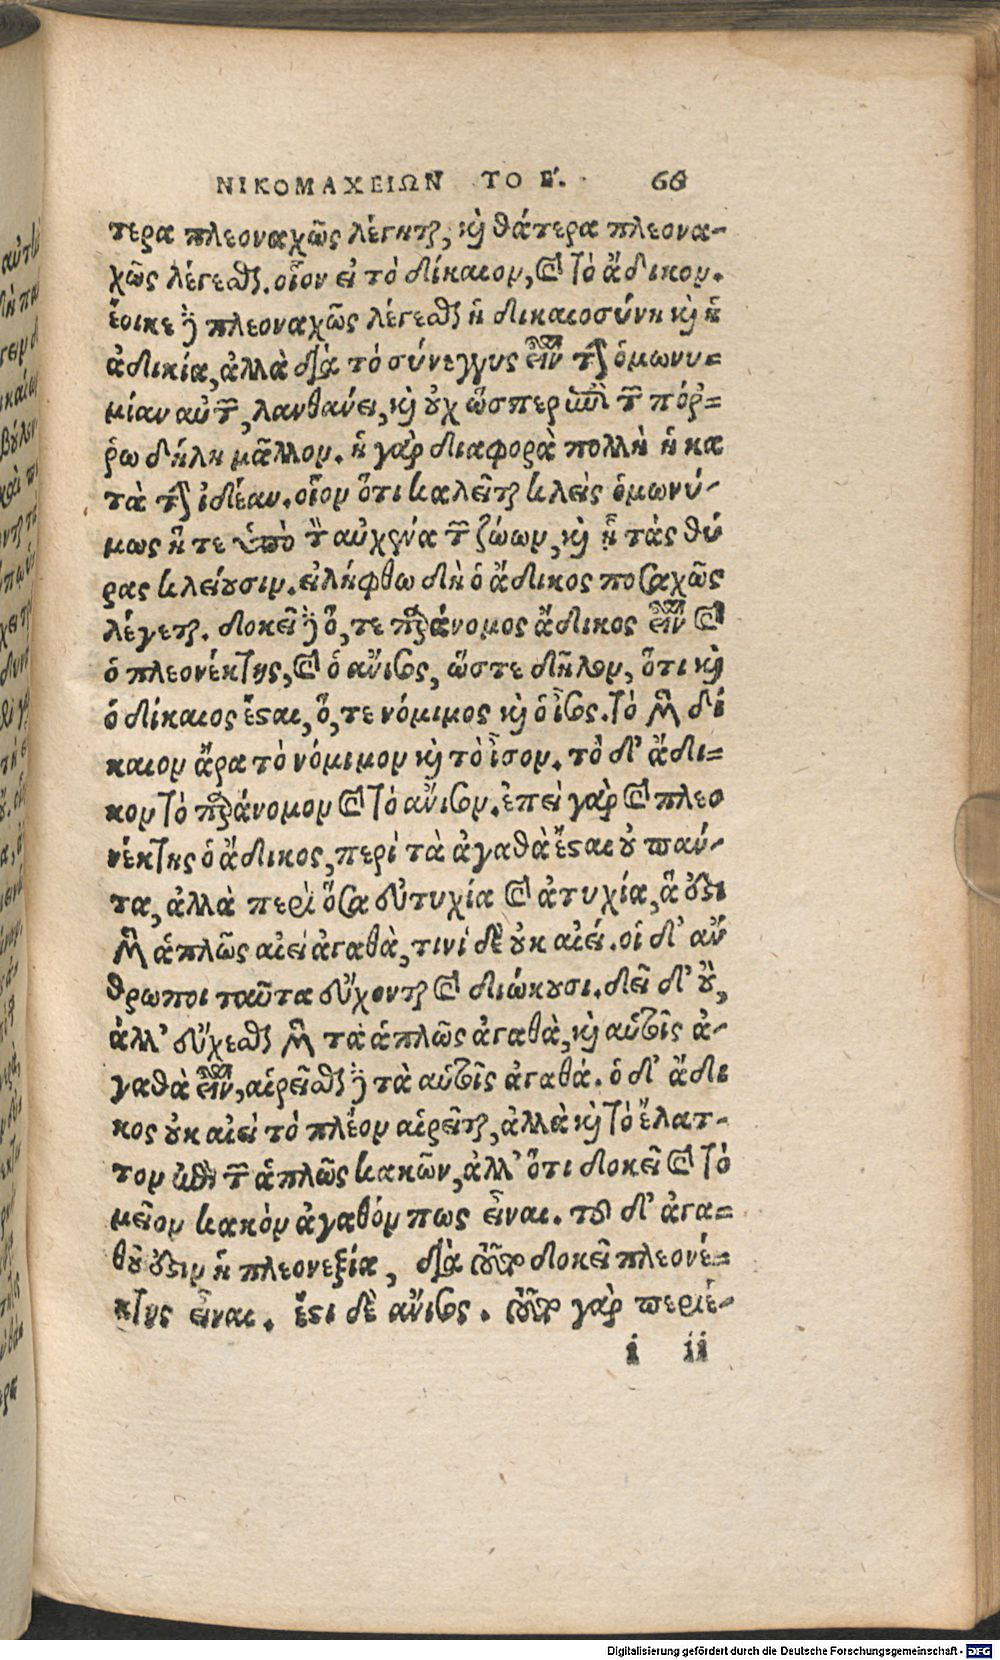 ΝΙΚΟΜΑΧΕΙΩΝ ΤΟ Ε΄. 66
τερα πλεοναχῶς λέγηται, καὶ θάτερα πλεονα-
χῶς λέγεσθαι. οἷον εἰ τὸ δίκαιον, καὶ τὸ ἄδικον.
ἔοικε δὲ πλεοναχῶς λέγεσθαι ἡ δικαιοσύνη καὶ ἡ
ἀδικία, ἀλλὰ διὰ τὸ σύνεγγυς εἶναι τὴν ὁμωνυ=
μίαν αὐτῶν, λανθάνει, καὶ οὐχ ὥσπερ ἐπὶ τῶν πόῤ=
ῥω δήλη μᾶλλον. ἡ γὰρ διαφορὰ πολλὴ ἡ κα
τὰ τὴν ἰδέαν. οἷον ὅτι καλεῖται κλεὶς ὁμωνύ-
μως ἥ τε ὑπὸ τὸν αὐχένα τῶν ζώων, καὶ ᾗ τὰς θύ
ρας κλείουσιν. εἰλήφθω δὴ ὁ ἄδικος ποσαχῶς
λέγεται. δοκεῖ δὲ ὅ, τε παράνομος ἄδικος εἶναι καὶ
ὁ πλεονέκτης, καὶ ὁ ἄνισος, ὥστε δῆλον, ὅτι καὶ
ὁ δίκαιος ἔσται, ὅ, τε νόμιμος καὶ ὁ ἴσος. τὸ μὲν δί
καιον ἄρα τὸ νόμιμον καὶ τὸ ἴσον. τὸ δ' ἄδι=
κον τὸ παράνομον καὶ τὸ ἄνισον. ἐπεὶ γὰρ καὶ πλεο
νέκτης ὁ ἄδικος, περὶ τὰ ἀγαθὰ ἔσται οὐ πάν-
τα, ἀλλὰ περὶ ὅσα εὐτυχία καὶ ἀτυχία, ἃ ἐστὶ
μὲν ἁπλῶς αἰεὶ ἀγαθὰ, τινὶ δὲ οὐκ αἰεί. οἱ δ' ἄν
θρωποι ταῦτα εὔχονται καὶ διώκουσι. δεῖ δ' οὒ,
ἀλλ' εὔχεσθαι μὲν τὰ ἁπλῶς ἀγαθὰ, καὶ αὑτοῖς ἀ-
γαθὰ εἶναι, αἱρεῖσθαι δὲ τὰ αὑτοῖς ἀγαθά. ὁ δ' ἄδι
κος οὐκ αἰεὶ τὸ πλέον αἱρεῖται, ἀλλὰ καὶ τὸ ἔλατ-
τον ἐπὶ τῶν ἁπλῶς κακῶν, ἀλλ' ὅτι δοκεῖ καὶ τὸ
μεῖον κακὸν ἀγαθόν πως εἶναι. τοῦ δ' ἀγα=
θοῦ ἐστιν ἡ πλεονεξία, διὰ τοῦτο δοκεῖ πλεονέ=
κτης εἶναι. ἔστι δὲ ἄνισος. τοῦτο γὰρ περιέ-
i ii
Digitalisierung gefördert durch die Deutsche Forschungsgemeinschaft - DFG